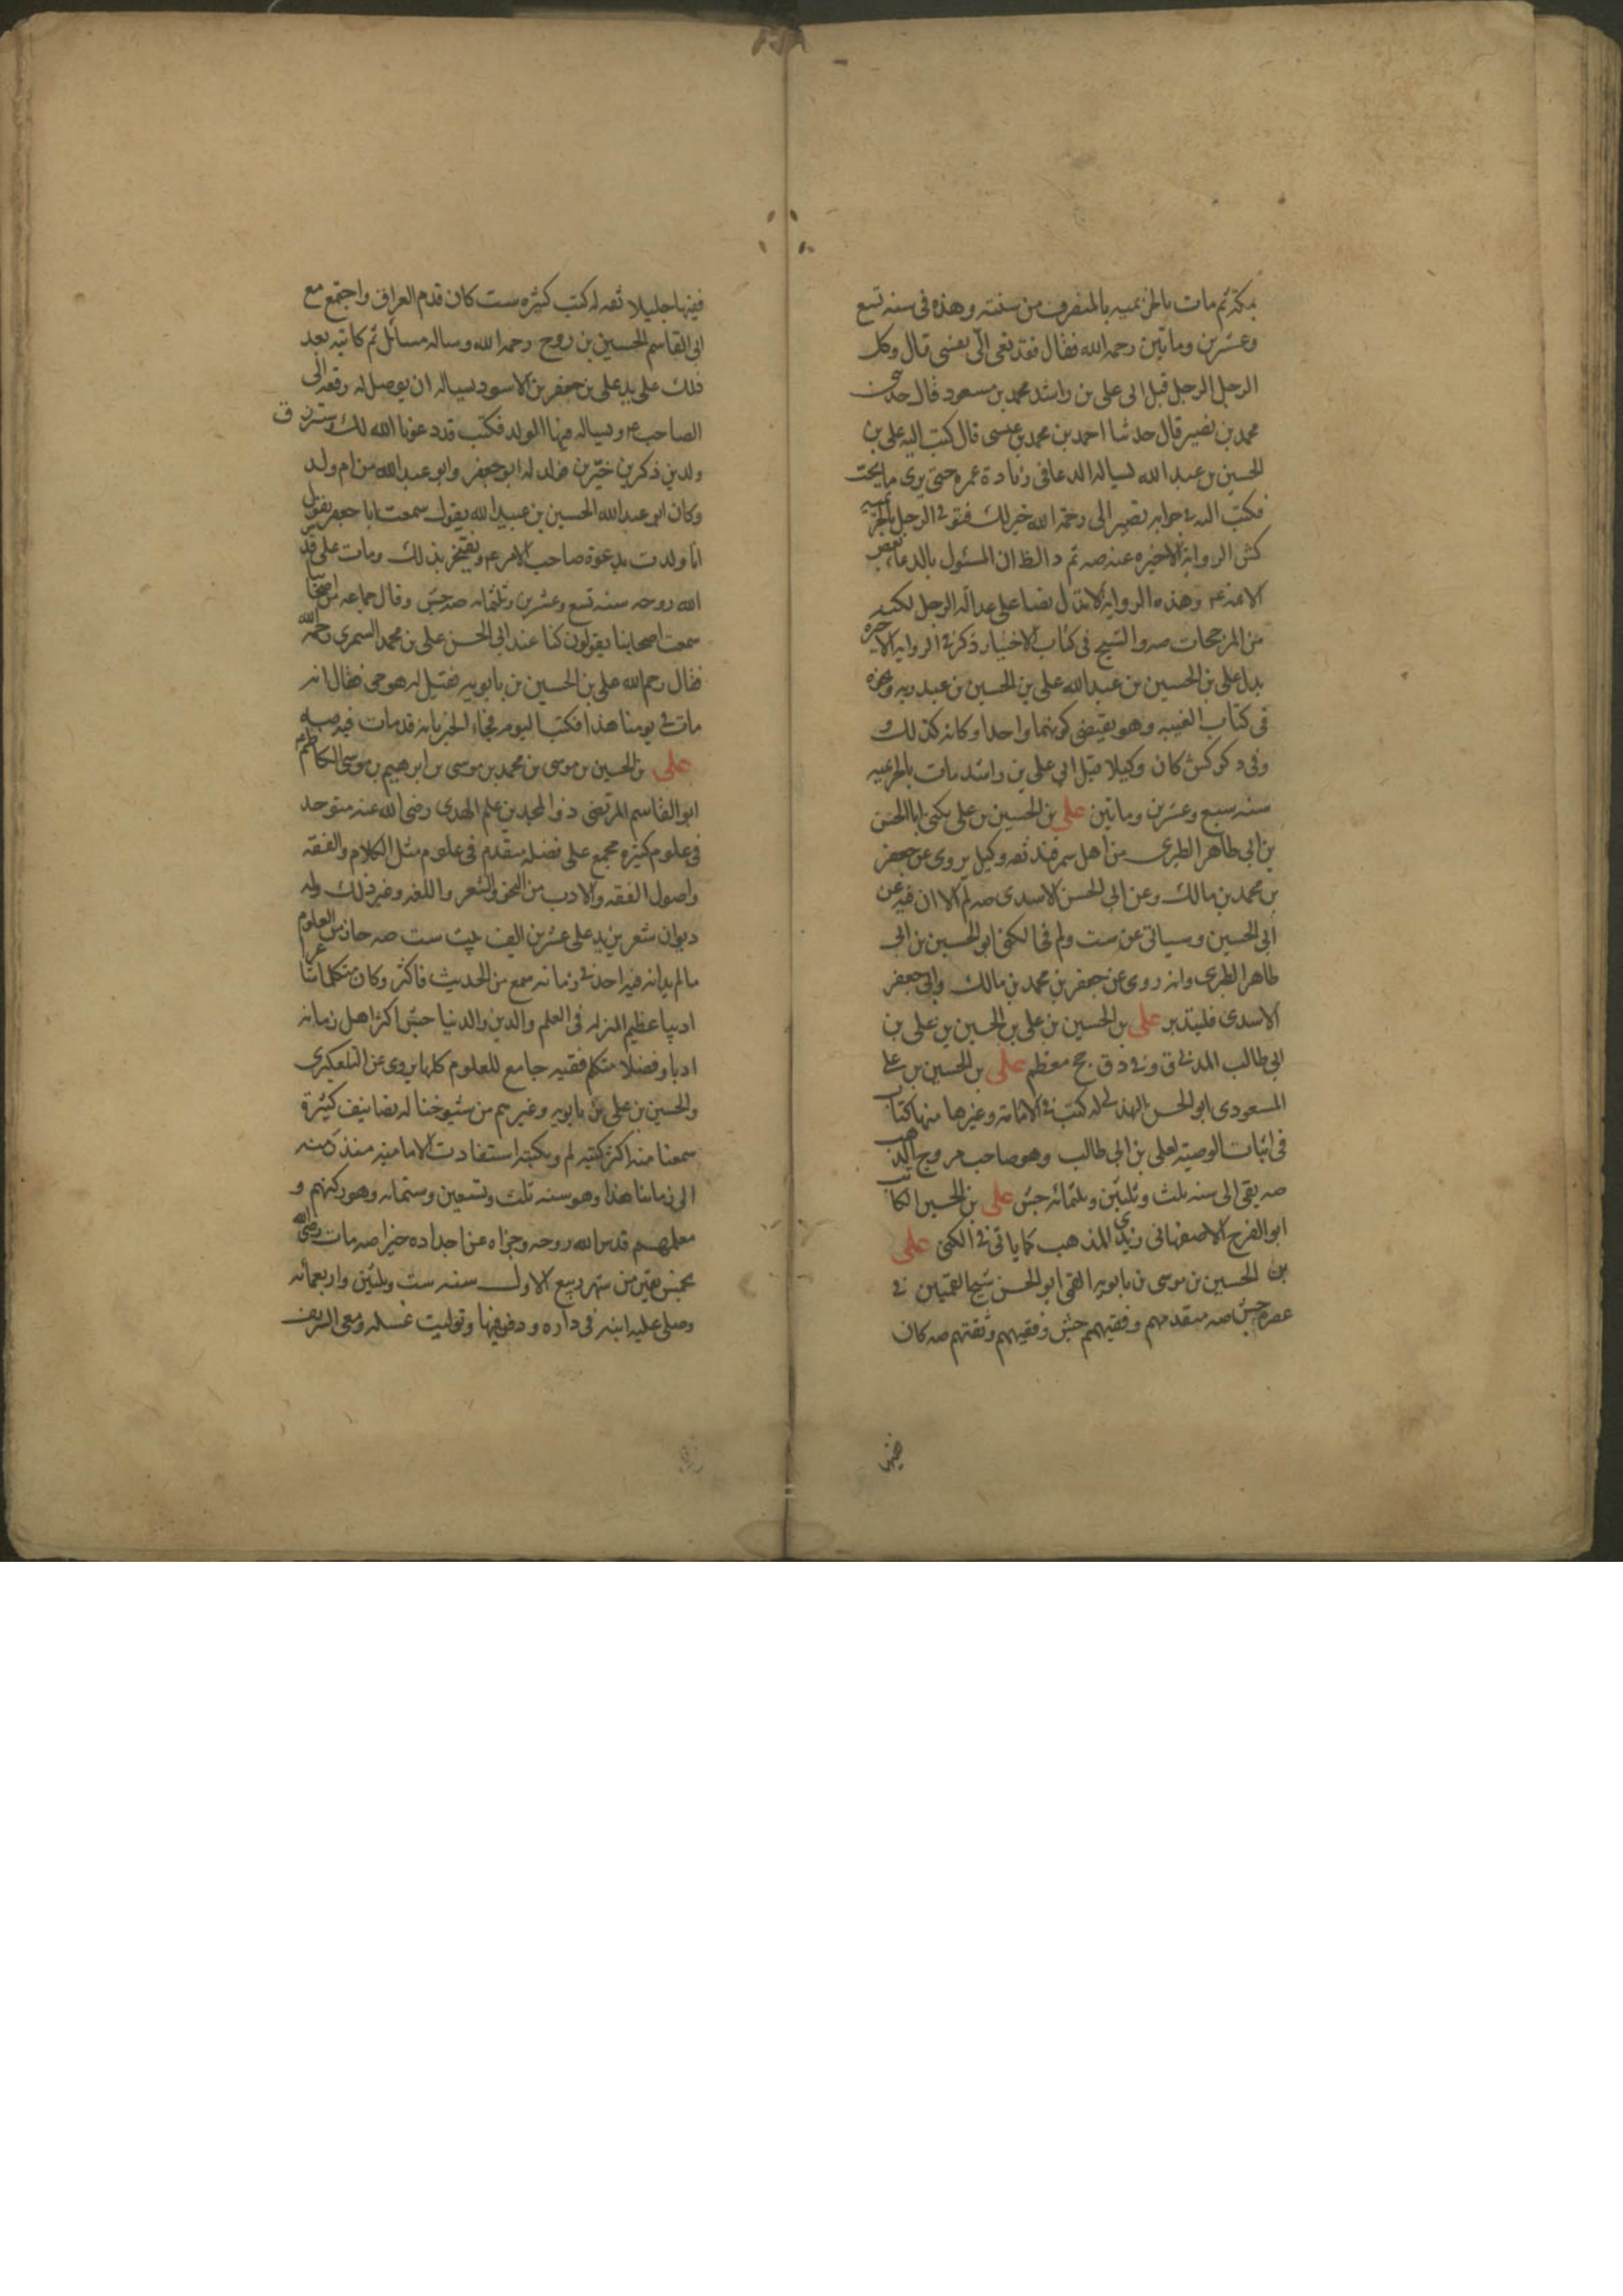 بمكة ثم مات بالخزيميه بالمنصرف من سنته وهذه فى سنه تسع
وعشرين وماتين رحمه الله فقال فقد نعى الىّ نفسى قال وكل
الرجل الرجل قبل ابى على بن راشد محمد بن مسعود قال حدثنى
محمد بن نصير قال حدثنا احمد بن محمد بن عيسى قال كتب اليه على بن
الحسين بن عبد الله يساله الدعا فى زيادة عمره حتى يرى ما يحبّ
فكتب اليه فى جوابه تصير الى رحمة الله خير لك فتوفى الرجل بالخزيميه
كش الرواية الاخيره عنه صه ثم د الظ ان المسئول بالدعا بعض
الائمه عم وهذه الرواية لا تدل نصا على عدالة الرجل لكنه
من المرجحات صه والشيخ فى كتاب الاختيار ذكر فى الرواية الاخيره
بدل على بن الحسين بن عبد الله على بن الحسين بن عبد ربه ونحوه
فى كتاب الغيبه وهو يقتضى كونهما واحدا وكانه كذلك
وفى د كر كش كان وكيلا قبل ابى على بن راشد مات بالخزيميه
سنه سبع وعشرين وماتين على بن الحسين بن على يكنى ابا الحسن
بن ابى طاهر الطبرى من اهل سمرقند ثقه وكيل يروى عن جعفر
بن محمد بن مالك وعن ابى الحسن الاسدى صه لم الا ان فيه عن
ابى الحسين وسياتى عن ست ولم فى الكنى ابو الحسين بن ابى
طاهر الطبرى وانه روى عن جعفر بن محمد بن مالك وابى جعفر
الاسدى فليتدبر على بن الحسين بن على بن الحسين بن على بن
ابى طالب المدنى ق وفى د ق جح معظم على بن الحسين بن على
المسعودى ابو الحسن الهذلى له كتب فى الامامة وغيرها منها كتاب
فى اثبات الوصيّه لعلى بن ابى طالب وهو صاحب مروج الذهب
صه بقى الى سنه ثلث وثلثين وثلثمائه جش على بن الحسين الكاتب
ابو الفرج الاصفهانى زيدى المذهب كما ياتى فى الكنى على
بن الحسين بن موسى بن بابويه القمى ابو الحسن شيخ القميّين فى
عصره جش صه متقدمهم وفقيههم جش وفقيههم وثقتهم صه كان
فيها جليلا ثقه له كتب كثيره ست كان قدم العراق واجتمع مع
ابى القاسم الحسين بن روح رحمه الله وساله مسائل ثم كاتبه بعد
ذلك على يد على بن جعفر بن الاسود يساله ان يوصل له رقعه الى
الصاحب م ويساله فيها الولد فكتب قد دعونا الله لك وسترزق
ولدين ذكرين خيّرين فولد له ابو جعفر وابو عبد الله من ام ولد
وكان ابو عبد الله الحسين بن عبيد الله يقول سمعت ابا جعفر يقول
انا ولدت بدعوة صاحب الامر عم ويفتخر بذلك ومات على قدس
الله روحه سنه تسع وعشرين وثلثمائه صه جش وقال جماعه من اصحابنا
سمعت اصحابنا يقولون كنا عند ابى الحسن على بن محمد السمرى رحمه الله
فقال رحم الله على بن الحسين بن بابويه فقيل له هو حى فقال انه
مات فى يومنا هذا فكتب اليوم فجاء الخبر بانه قد مات فيه صه
على بن الحسين بن موسى بن محمد بن موسى بن ابرهيم بن موسى الكاظم عم
ابو القاسم المرتضى ذو المجدين علم الهدى رضى الله عنه متوحد
فى علوم كثيره مجمع على فضله متقدم فى علوم مثل الكلام والفقه
واصول الفقه والادب من النحو والشعر واللغه وغير ذلك وله
ديوان شعر يزيد على عشرين الف بيت ست صه حاز من العلوم
ما لم يدانه فيه احد فى زمانه سمع من الحديث فاكثر وكان متكلما شاعرا
اديبا عظيم المنزله فى العلم والدين والدنيا جش اكثر اهل زمانه
ادبا وفضلا متكلم فقيه جامع للعلوم كلها يروى عن التلعكبرى
والحسين بن على بن بابويه وغيرهم من شيوخنا له تصانيف كثيرة
سمعنا منه اكثر كتبه لم وبكتبه استفادت الاماميه منذ زمنه
الى زماننا هذا وهو سنه ثلث وتسعين وستمائه وهو ركنهم و
معلمهم قدس الله روحه وجزاه عن اجداده خيرا صه مات رضى الله
لخمس بقين من شهر ربيع الاول سنه ست وثلثين واربعمائه
وصلى عليه ابنه فى داره ودفن فيها وتوليت غسله ومعى الشريف